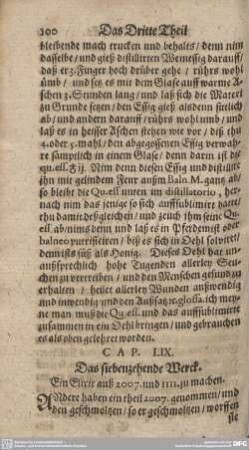 100 Das Dritte Theil
bleibende mach trucken und behalts / denn nim
dasselbe / und gieß destillirten Weinessig darauff /
daß er 3. Finger hoch drüber gehe / rührs wohl
umb / und setz es mit dem Glase auff warme A-
schen 3. Stunden lang / und laß sich die Materi
zu Grunde setzen / den Essig gieß alsdenn seetlich
ab / und andern darauff / rührs wohl umb / und
laß es in heisser Aschen stehen wie vor / diß thu
4. oder 5. mahl / den abgegossenen Essig verwah-
re sämptlich in einem Glase / denn darin ist die
qu. ess. ♄ ij. Nim denn diesen Essig und distillir
ihn mit gelindem Feur außm Baln. M. gantz ab /
so bleibt die Qu. ess. unten im distillatorio, her-
nach nim das jenige so sich auffsublimirt hatte /
thu damit deßgleichen / und zeuch ihm seine Qu-
ess. ab / nims denn und laß es in Pferdemist oder
balneo putrificiren / biß es sich in Oehl solvirt /
denn ists süß als Honig. Dieses Oehl hat un-
außsprechlich hohe Tugenden allerley Seu-
chen zu vertreiben / und den Menschen gesund zu
erhalten / heilet allerley Wunden außwendig
und inwendig und den Außsatz. glossa. ich mey-
ne man muß die Qu. ess. und das auffsublimirte
zusammen in ein Oehl bringen / und gebrauchen
es als oben gelehret worden.
CAP. LIX.
Das siebenzehende Werck.
Ein Elixir auß 2007. und 1111. zu machen.
ANdere haben ein theil 2007. genommen / und
den geschmoltzen / so er geschmoltzen / worffen
sie